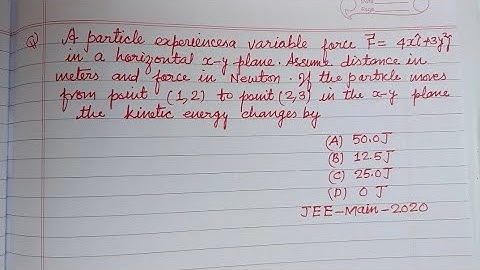 Q A particle experiences a variable force F⃗ = 4xî+3y²ĵ
in a horizontal x-y plane. Assume distance in
meters and force in Newton. If the particle moves
from point (1,2) to point (2,3) in the x-y plane
the kinetic energy changes by
(A) 50.0J
(B) 12.5J
(C) 25.0J
(D) 0 J
JEE-Main-2020